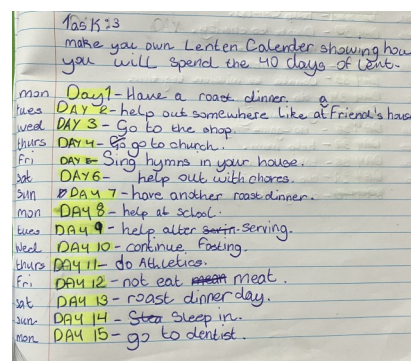 Task:3
make you own Lenten Calender showing how
you will spend the 40 days of Lent.
mon Day1 - Have a roast dinner.
tues DAY 2 - help out somewhere like at a Friend's house
wed DAY 3 - Go to the shop.
thurs DAY 4 - Go go to church.
Fri DAY 5 - Sing hymns in your house.
sat DAY6 - help out with chores.
sun DAY 7 - have another roast dinner.
mon DAY 8 - help at school.
tues DAY 9 - help alter serving.
wed DAY 10 - continue fasting.
thurs DAY 11 - do Athletics.
Fri DAY 12 - not eat mean meat.
sat DAY 13 - roast dinner day.
sun DAY 14 - Sleep in.
mon DAY 15 - go to dentist.